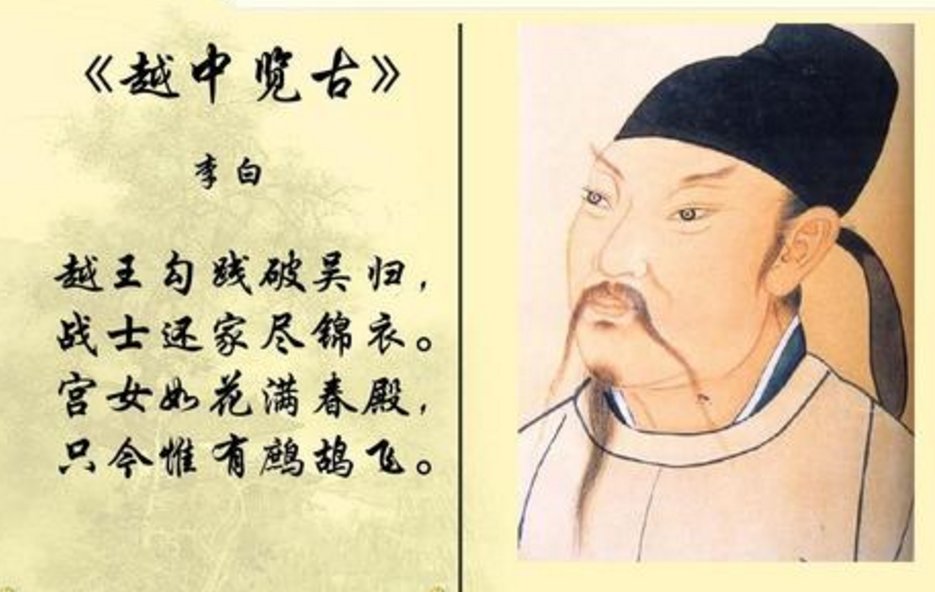 《越中览古》
李白
越王勾践破吴归，
战士还家尽锦衣。
宫女如花满春殿，
只今惟有鹧鸪飞。